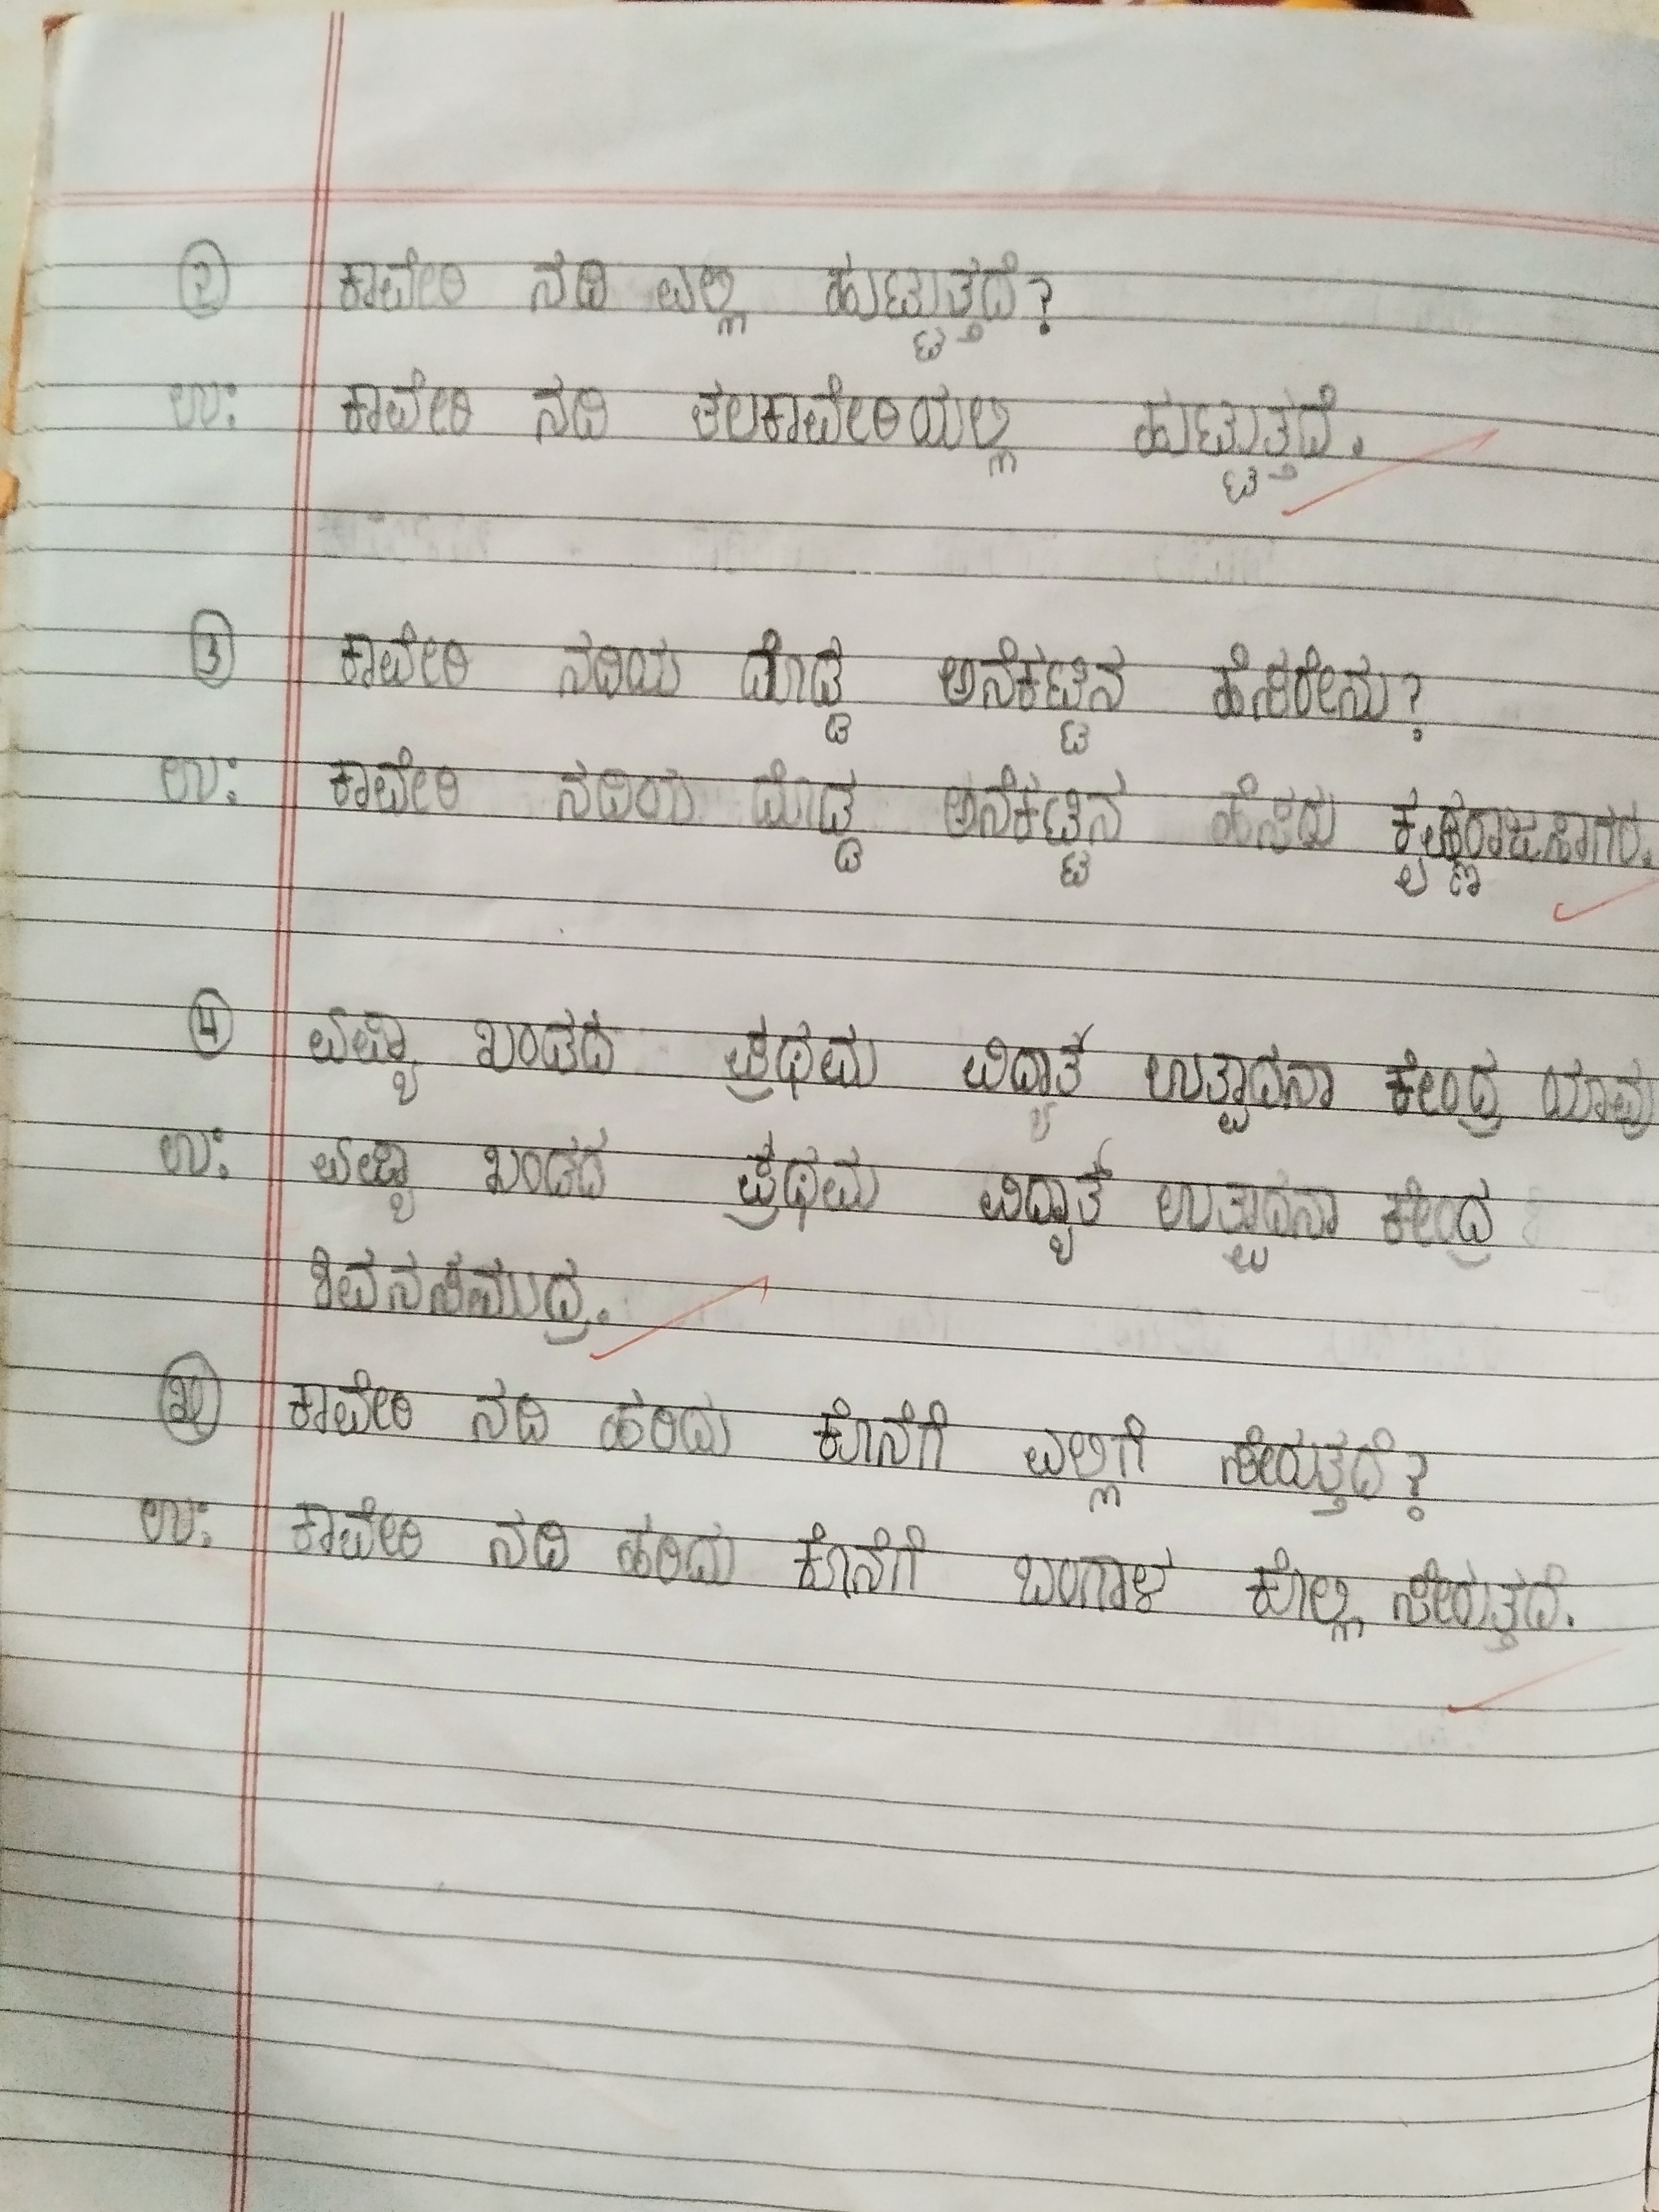 ೨ ಕಾವೇರಿ ನದಿ ಎಲ್ಲಿ ಹುಟ್ಟುತ್ತದೆ?
ಉ: ಕಾವೇರಿ ನದಿ ತಲಕಾವೇರಿಯಲ್ಲಿ ಹುಟ್ಟುತ್ತದೆ.
೩ ಕಾವೇರಿ ನದಿಯ ದೊಡ್ಡ ಅನೆಕಟ್ಟಿನ ಹೆಸರೇನು?
ಉ: ಕಾವೇರಿ ನದಿಯ ದೊಡ್ಡ ಅನೆಕಟ್ಟಿನ ಹೆಸರು ಕೃಷ್ಣರಾಜಸಾಗರ.
೪ ಏಷ್ಯಾ ಖಂಡದ ಪ್ರಥಮ ಉತ್ಪಾದನಾ ಕೇಂದ್ರ ಯಾವು
ಉ: ಏಷ್ಯಾ ಖಂಡದ ಪ್ರಥಮ ಉತ್ಪಾದನಾ ಕೇಂದ್ರ
ಶಿವನಸಮುದ್ರ.
೫ ಕಾವೇರಿ ನದಿ ಹರಿದು ಕೊನೆಗೆ ಎಲ್ಲಿಗೆ ಸೇರುತ್ತದೆ?
ಉ: ಕಾವೇರಿ ನದಿ ಹರಿದು ಕೊನೆಗೆ ಬಂಗಾಳ ಕೊಲ್ಲಿ ಸೇರುತ್ತದೆ.